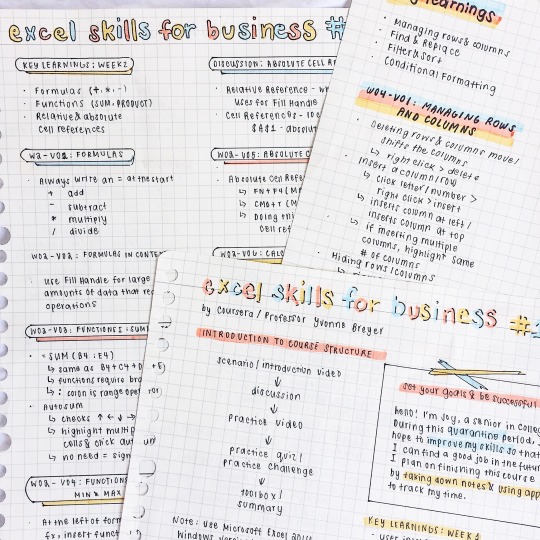 excel skills for business #
KEY LEARNINGS: WEEK2
• Formulas (+, *, -)
• Functions (SUM, PRODUCT)
• Relative & absolute
cell references
W2-V02: FORMULAS
• Always write an = at the start
+ add
- subtract
* multiply
/ divide
W02-V02: FORMULAS IN
use Fill Handle for large
amounts of data that
operations
W02-V03: FUNCTIONS I: SUM
• =SUM (B4:E4)
↳ same as B4+C4+D
↳ functions require
↳ : colon is range
• Autosum
↳ checks ↑ ← ↓ →
↳ highlight
cells & click
↳ no need = sign
W02-V04: FUNCTIONS
MIN & MAX
At the left of
fx, insert
DISCUSSION: ABSOLUTE CELL
• Relative Reference -
uses for Fill Handle
• Cell References -
$A$1 -
W02-V05: ABSOLUTE
• Absolute Cell
↳ FN+F4
↳ CMD+T
↳ Doing
cell
W02-V06:
learnings
• Managing rows & columns
• Find & Replace
• Filter & Sort
• Conditional Formatting
W04-V01: MANAGING ROWS
AND COLUMNS
• Deleting rows & columns move/
shifts the columns
↳ right click > delete
• Insert a column/row
↳ click letter/number >
right click > insert
↳ inserts column at left/
inserts column at top
↳ if inserting multiple
columns, highlight same
# of columns
• Hiding rows/columns
excel skills for business #
by Coursera / Professor Yvonne Breyer
INTRODUCTION TO COURSE STRUCTURE
scenario/introduction video
↓
discussion
↓
practice video
↓
practice quiz/
practice challenge
↓
toolbox/
summary
Note: Use Microsoft Excel
Windows
set your goals & be successful
hello! I'm Joy, a senior in
During this quarantine period,
hope to improve my skills so that
I can find a good job in the
I plan on finishing this course
by taking down notes & using
to track my time.
KEY LEARNINGS: WEEK 1